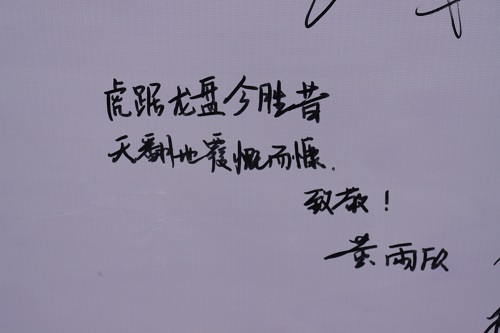 虎踞龙盘今胜昔
天翻地覆慨而慷.
致敬！
黄雨欣